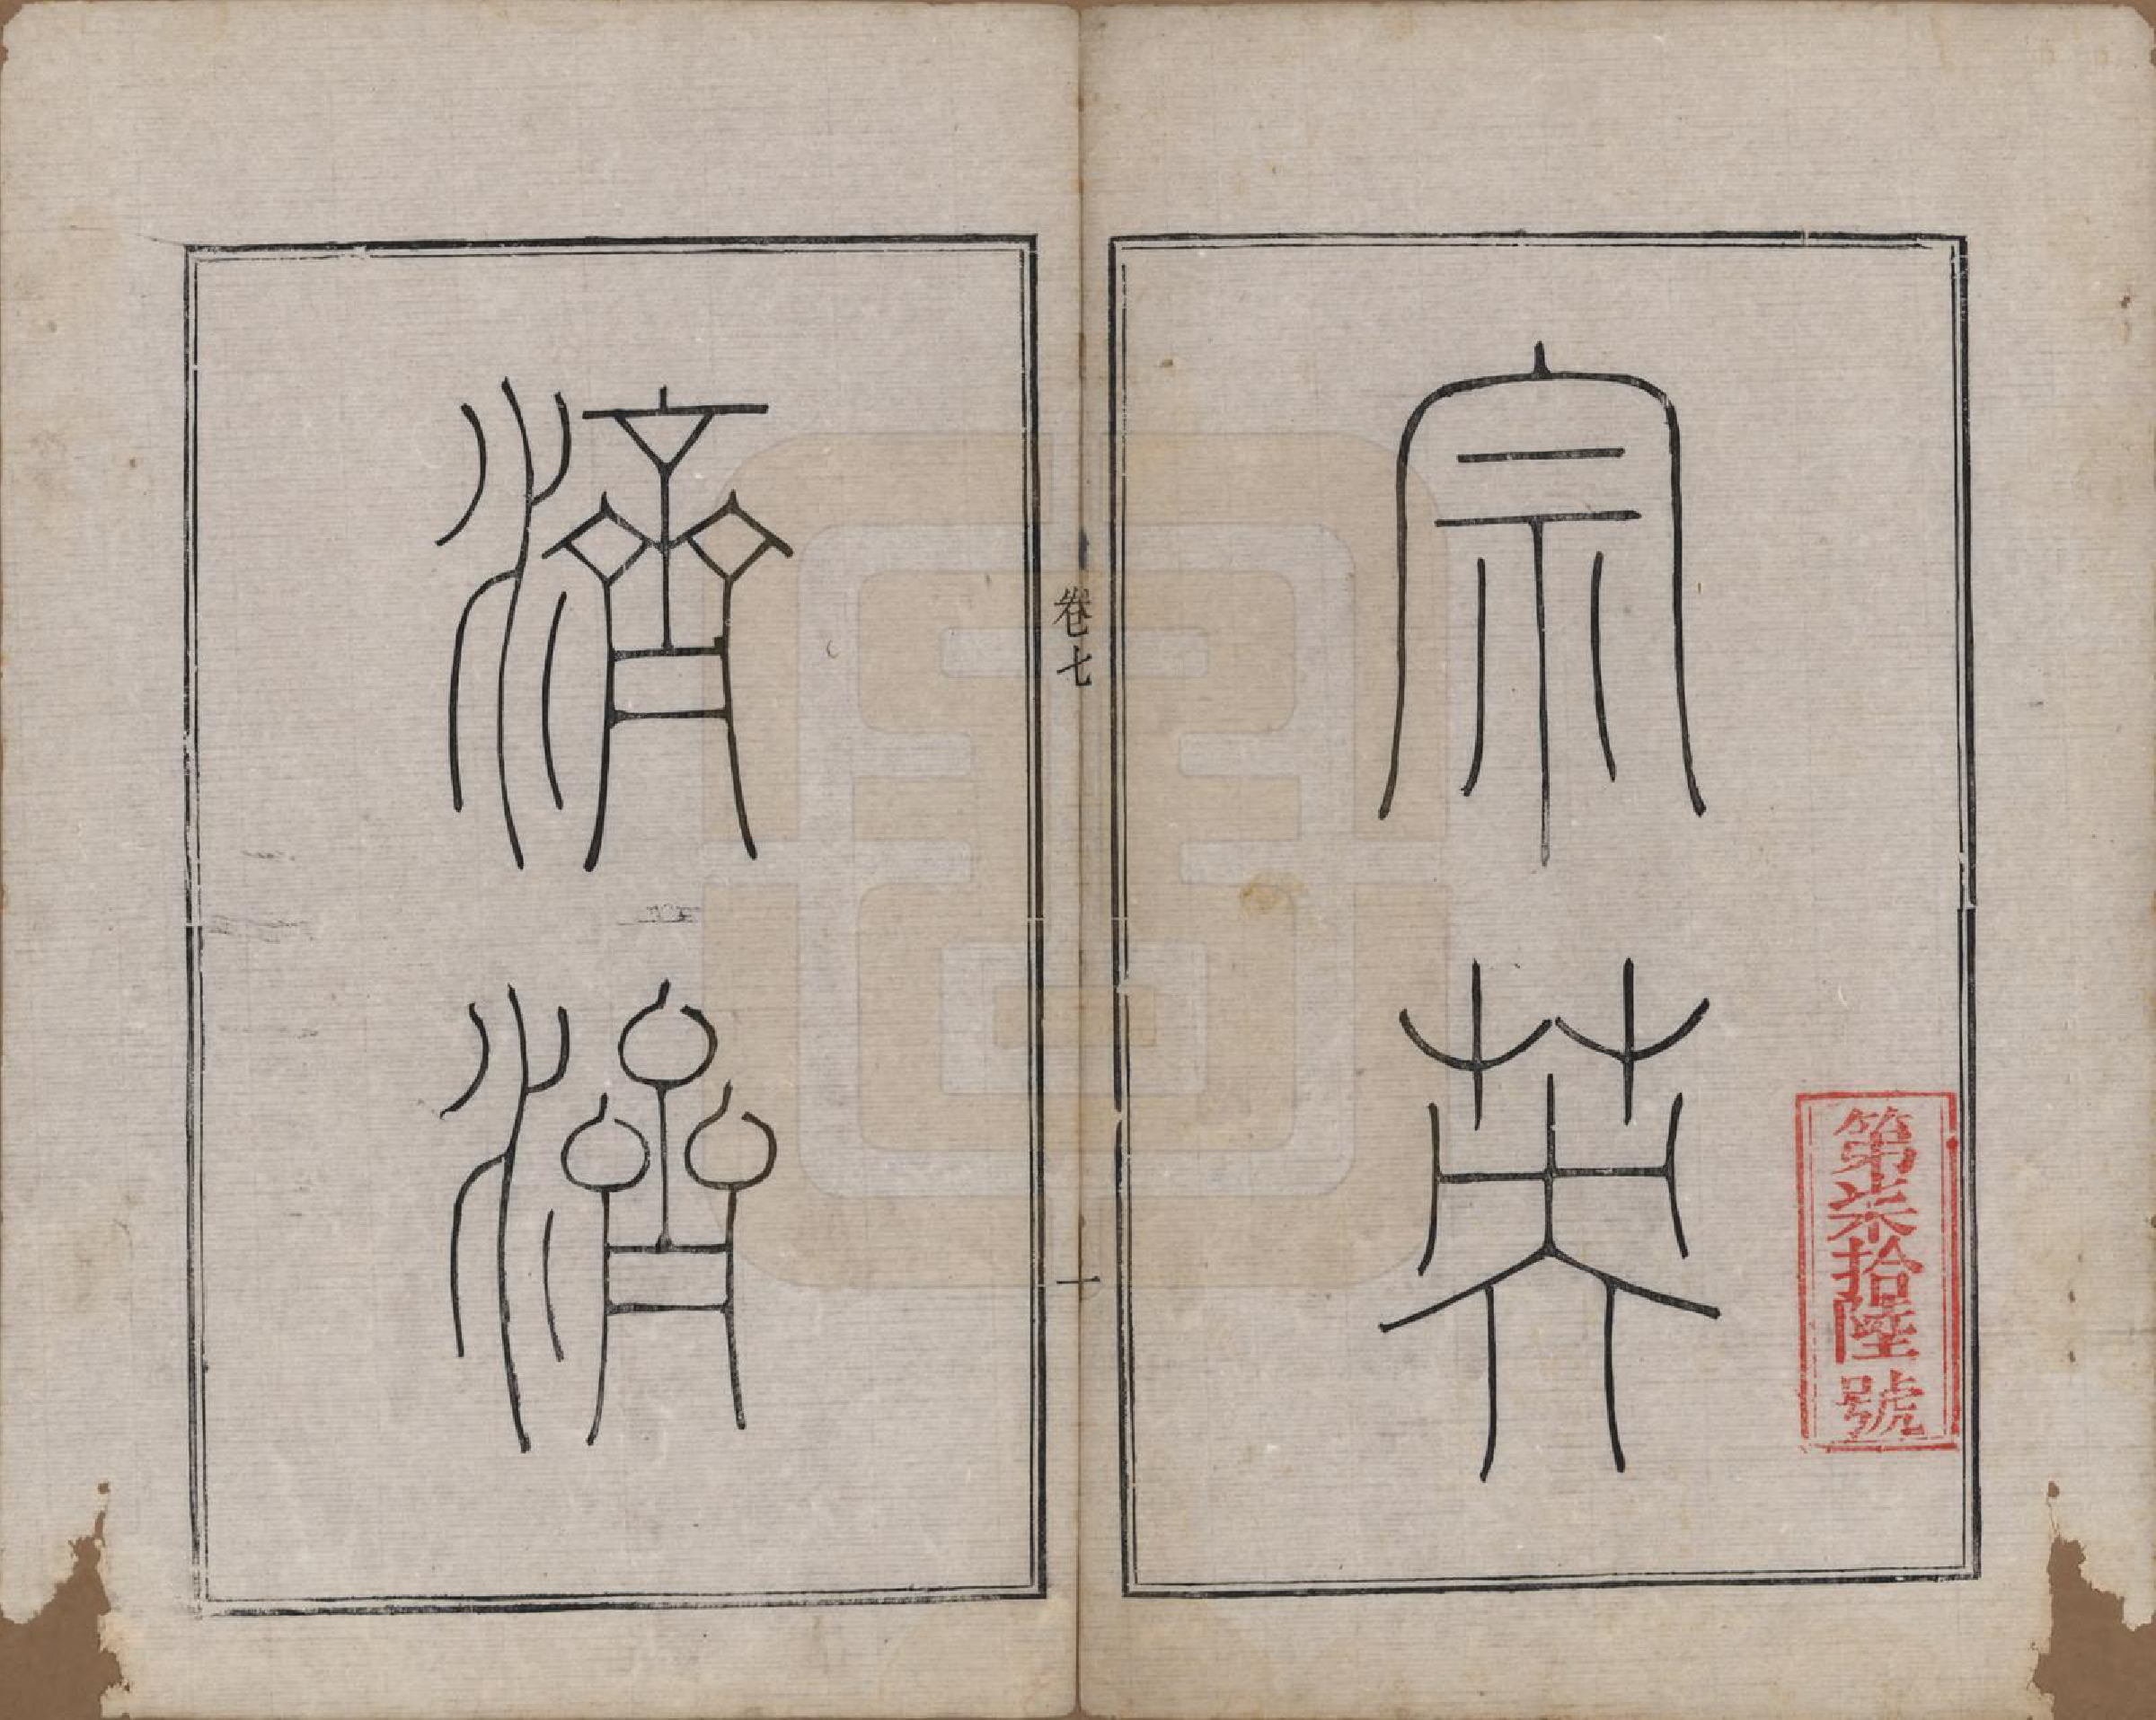 宗英
濟濟
卷七
一
第柒拾陸號